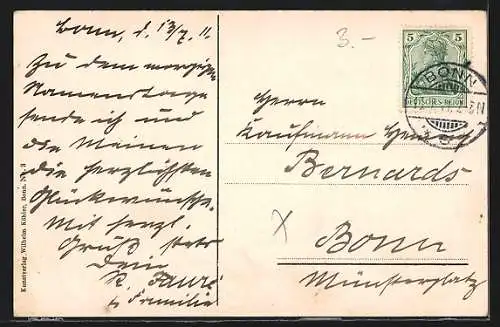 Bonn, d. 13/7. 11.
Zu dem morgigen
Namenstage
sende ich und
die Meinen
die herzlichsten
Glückwünsche.
Mit herzl.
Gruß stets
Dein
&
Familie
Kunstverlag Wilhelm Köhler, Bonn. No. 3
3.-
5 5
DEUTSCHES REICH
BONN
Herrn
Kaufmann
Bernards
Bonn
Münsterplatz